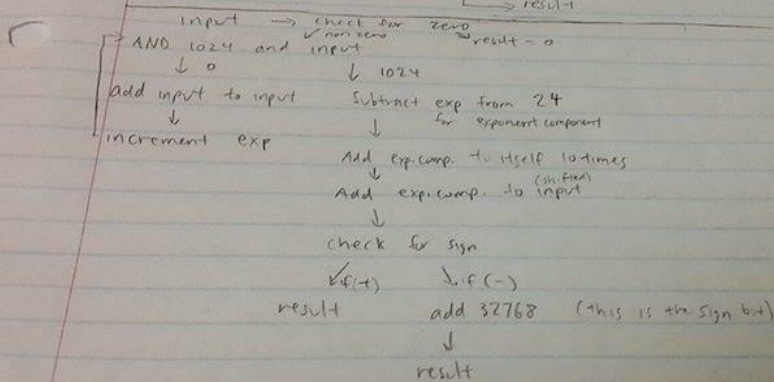 → result
input → check for zero
↙ nonzero ↘ result = 0
AND 1024 and input
↓ 0 ↓ 1024
add input to input Subtract exp from 24
for exponent component
↓ ↓
increment exp Add exp.comp. to itself 10 times
↓
(shifted)
Add exp.comp. to input
↓
check for sign
↙ if(+) ↓ if (-)
result add 32768 (this is the sign bit)
↓
result